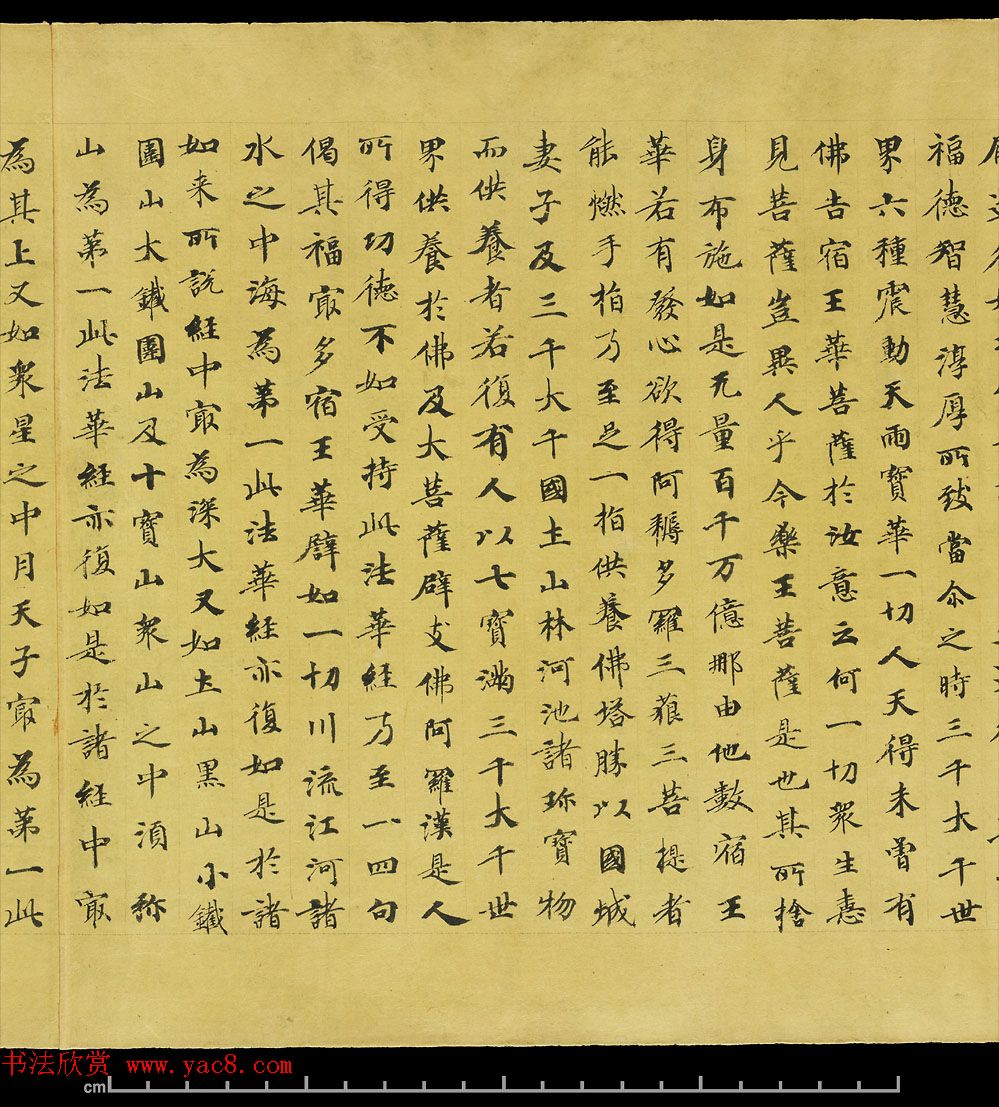 福德智慧淳厚所致當尒之時三千大千世
界六種震動天雨寶華一切人天得未曾有
佛告宿王華菩薩於汝意云何一切眾生憙
見菩薩豈異人乎今樂王菩薩是也其所捨
身布施如是无量百千万億那由他數宿王
華若有發心欲得阿耨多羅三藐三菩提者
能燃手指乃至足一指供養佛塔勝以國城
妻子及三千大千國土山林河池諸珎寶物
而供養者若復有人以七寶滿三千大千世
界供養於佛及大菩薩辟支佛阿羅漢是人
所得功德不如受持此法華經乃至一四句
偈其福冣多宿王華譬如一切川流江河諸
水之中海為第一此法華經亦復如是於諸
如来所說經中冣為深大又如土山黑山小鐵
圍山大鐵圍山及十寶山眾山之中須弥
山為第一此法華經亦復如是於諸經中冣
為其上又如眾星之中月天子冣為第一此
书法欣赏 www.yac8.com
cm